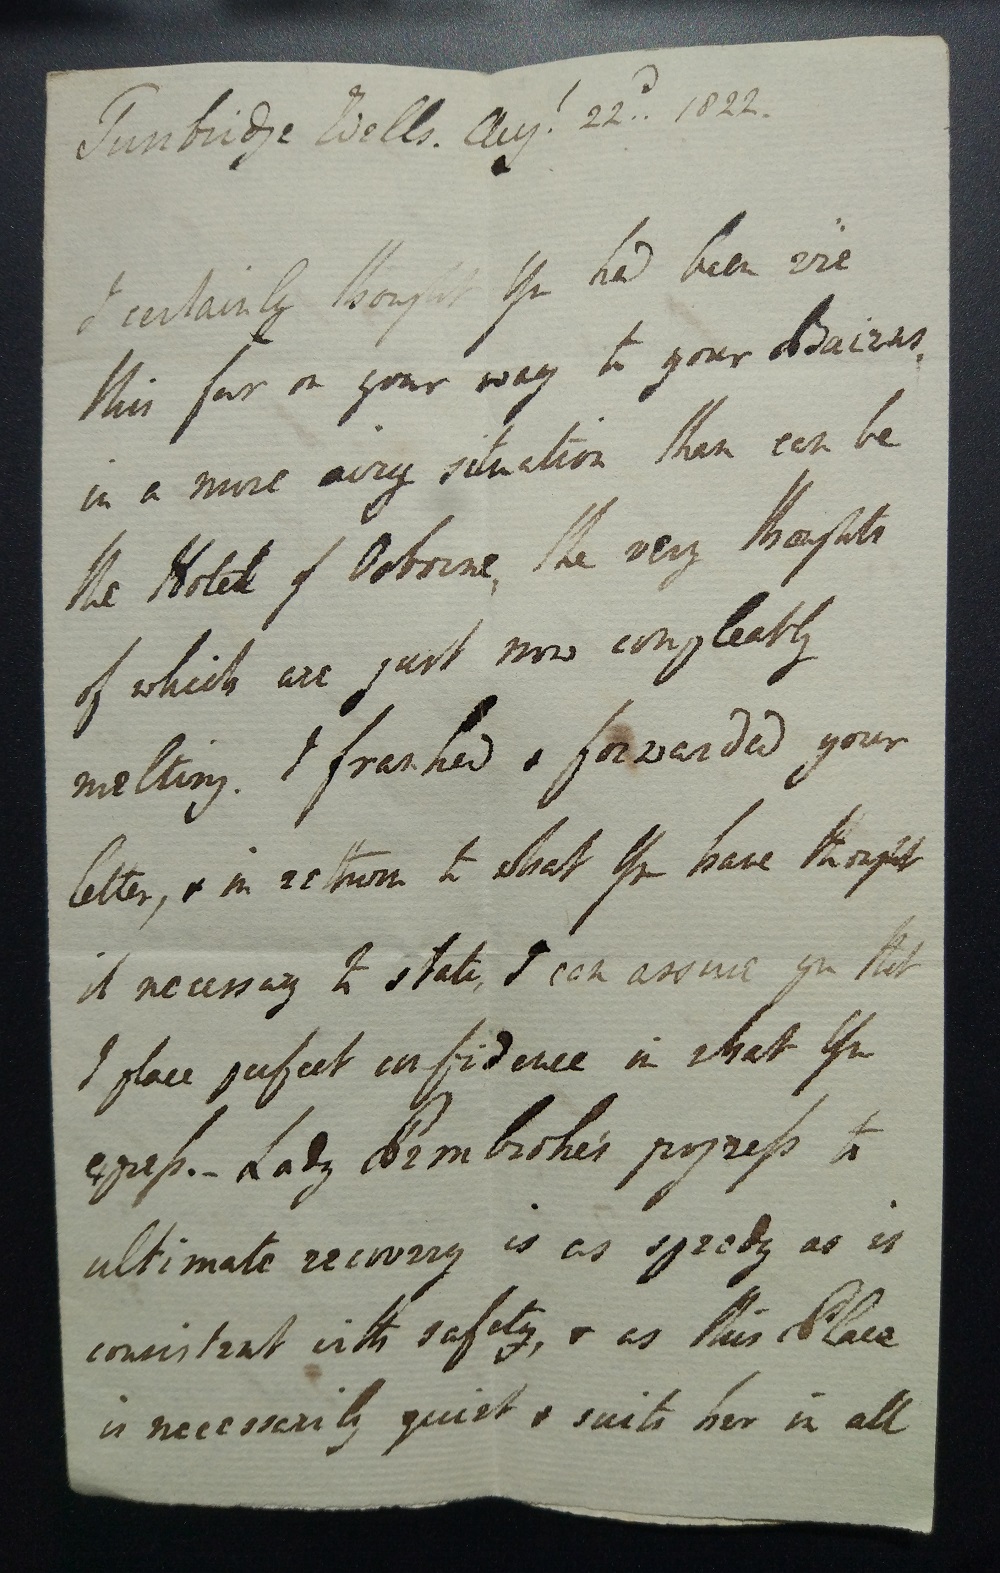 Tunbridge Wells. Augt 22d. 1822.
I certainly thought you had been ere
this far on your way to your Bairns,
in a more airy situation than can be
the Hotel of Osborne, the very thoughts
of which are just now compleatly
melting. I franked & forwarded your
letter, & in return to what you have thought
it necessary to state, I can assure you that
I place perfect confidence in what you
express. - Lady Pembroke's progress to
ultimate recovery is as speedy as is
consistent with safety, & as this Place
is necessarily quiet & suits her in all